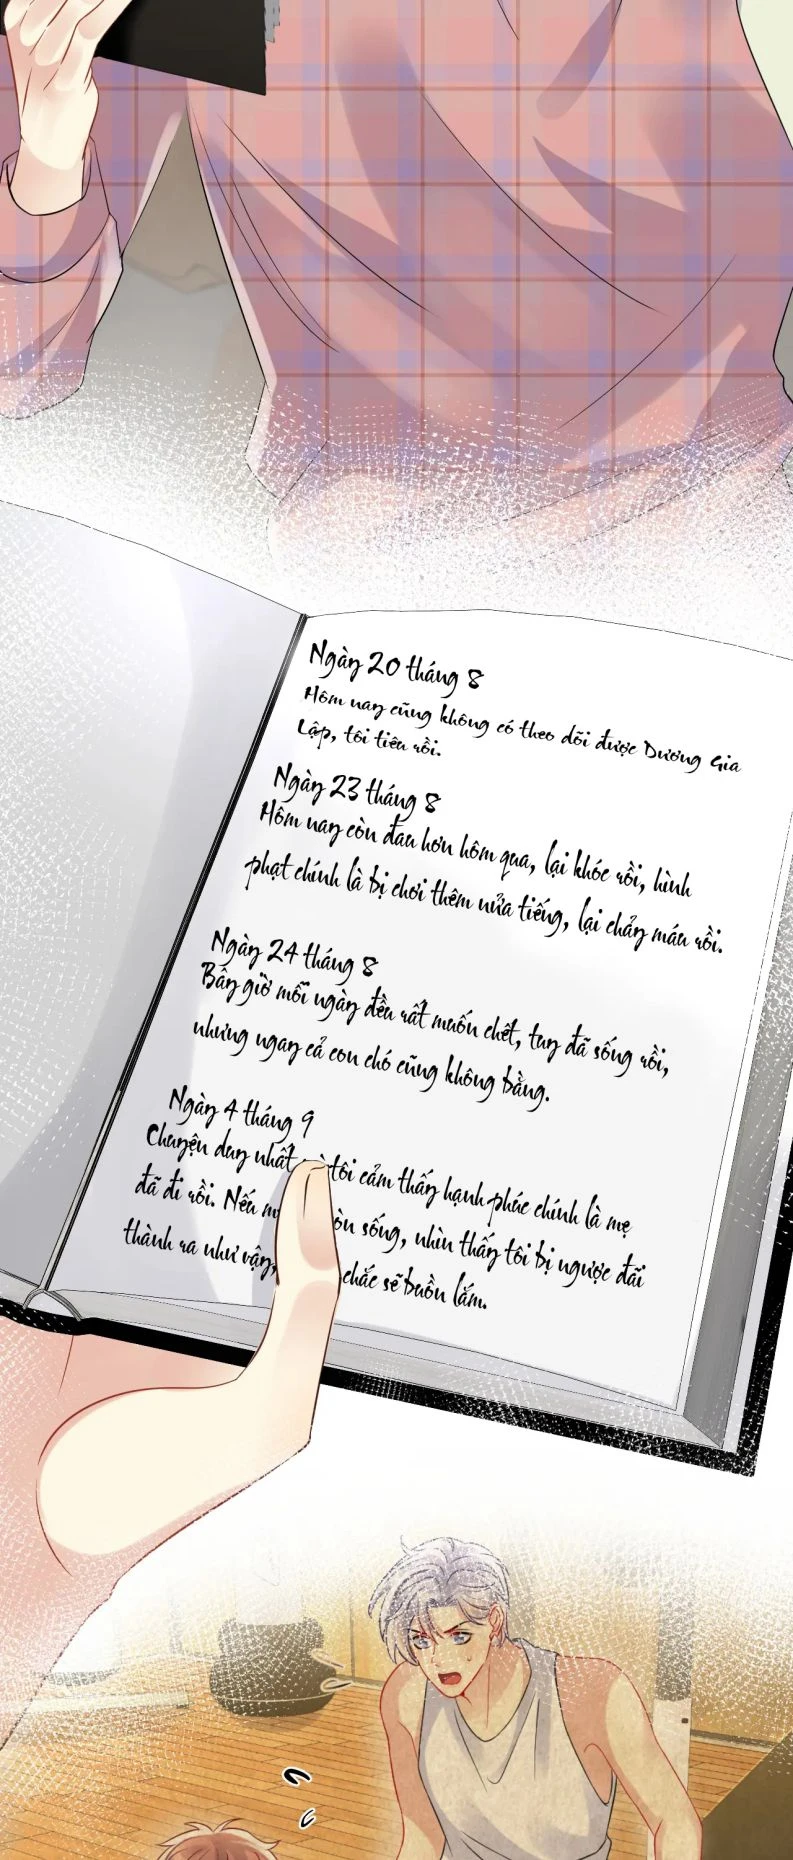 Ngày 20 tháng 8
Hôm nay cũng không có theo dõi được Dương Gia
Lập, tôi tiêu rồi.
Ngày 23 tháng 8
Hôm nay còn đau hơn hôm qua, lại khóc rồi, hình
phạt chính là bị chơi thêm nửa tiếng, lại chảy máu rồi.
Ngày 24 tháng 8
Bây giờ mỗi ngày đều rất muốn chết, tuy đã sống rồi,
nhưng ngay cả con chó cũng không bằng.
Ngày 4 tháng 9
Chuyện duy nhất mà tôi cảm thấy hạnh phúc chính là mẹ
đã đi rồi. Nếu sống, nhìn thấy tôi bị ngược đãi
thành ra như vậy, chắc sẽ buồn lắm.